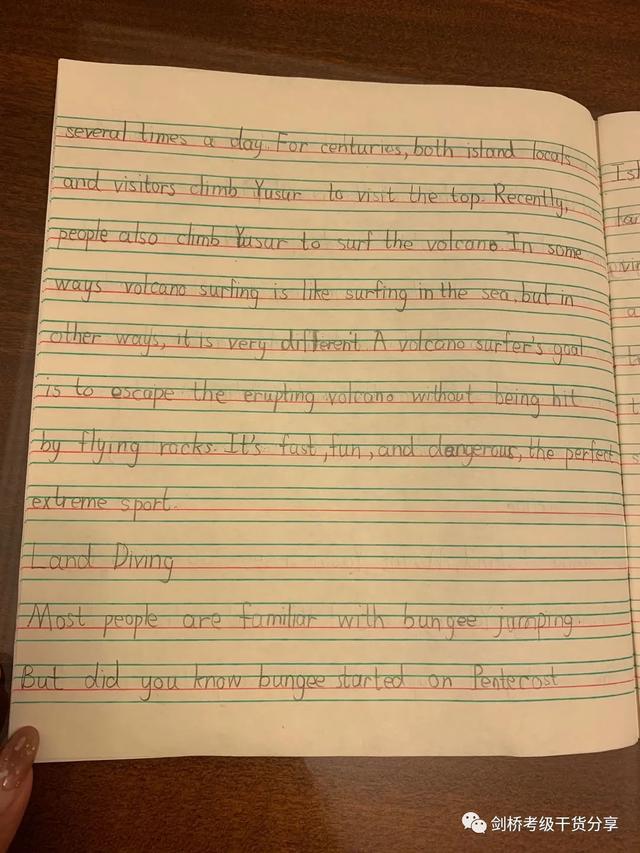 several times a day. For centuries, both island locals
and visitors climb Yusur to visit the top. Recently,
people also climb Yusur to surf the volcano. In some
ways volcano surfing is like surfing in the sea, but in
other ways, it is very different. A volcano surfer's goal
is to escape the erupting volcano without being hit
by flying rocks. It's fast, fun, and dangerous, the perfect
extreme sport.
Land Diving
Most people are familiar with bungee jumping.
But did you know bungee started on Pentecost
剑桥考级干货分享